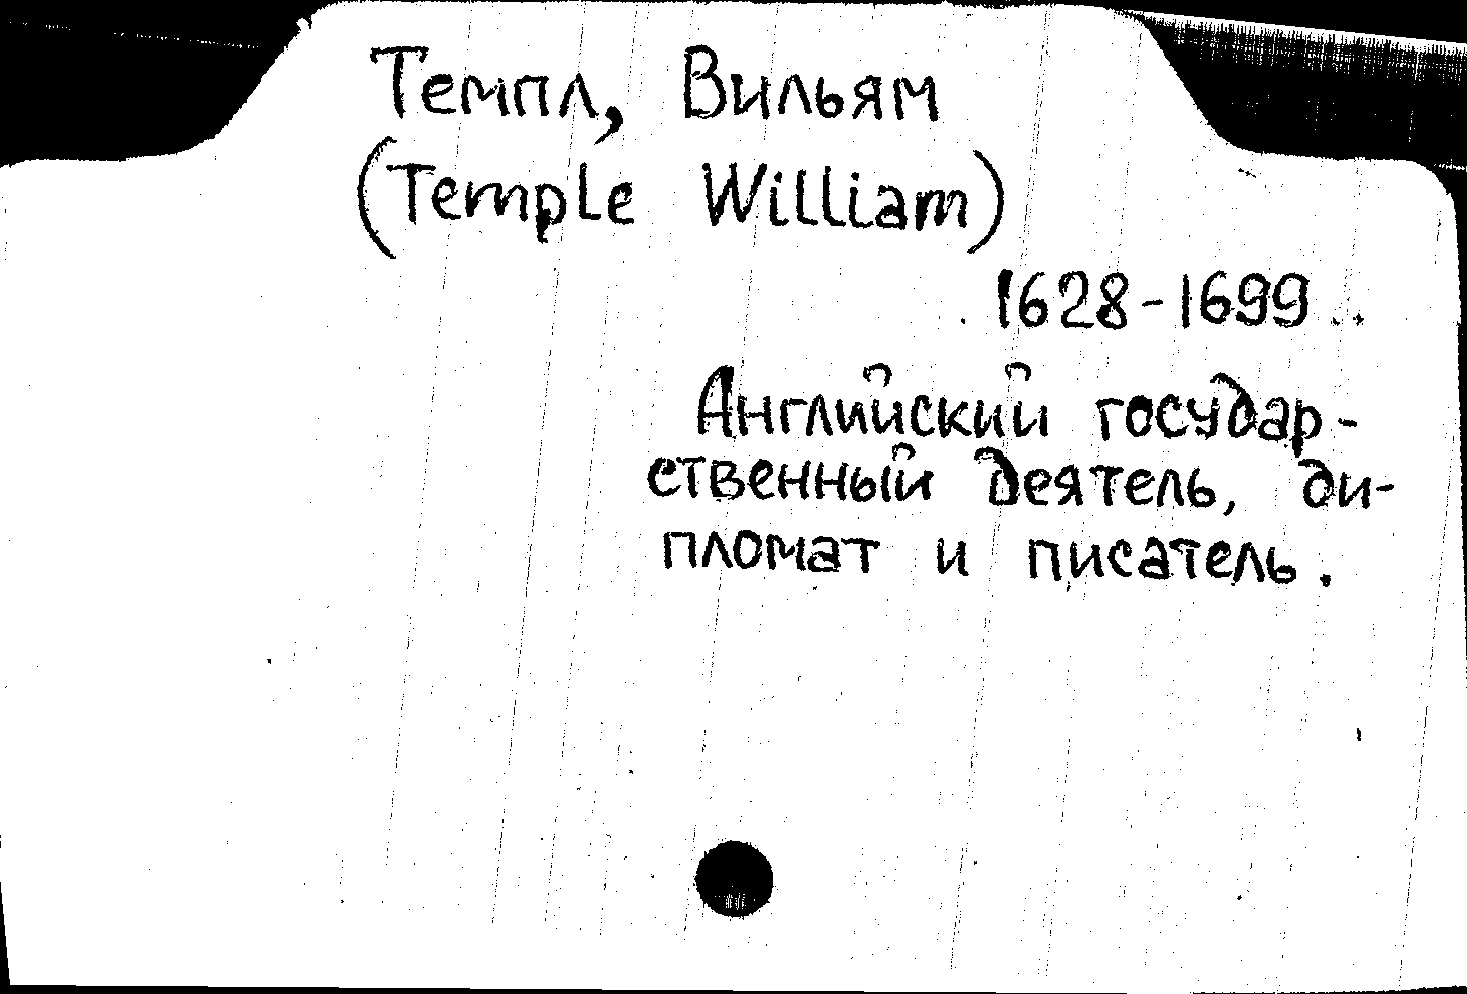 Темпл, Вильям
(Temple William)
1628-1699
Английский государ-
ственный деятель, ди-
пломат и писатель.